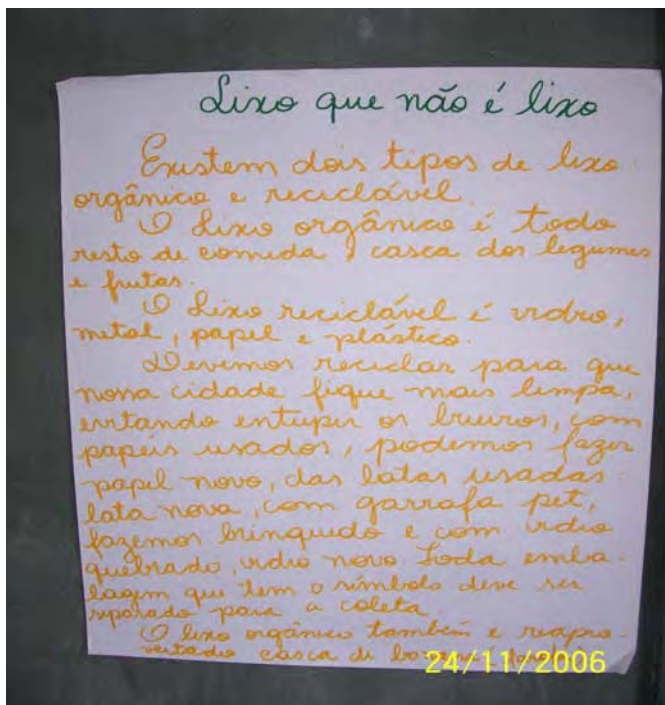 Lixo que não é lixo
Existem dois tipos de lixo
orgânico e reciclável.
O Lixo orgânico é todo
resto de comida, casca dos legumes
e frutas.
O Lixo reciclável é vidro,
metal, papel e plástico.
Devemos reciclar para que
nossa cidade fique mais limpa,
evitando entupir os bueiros, com
papéis usados, podemos fazer
papel novo, das latas usadas
lata nova, com garrafa pet,
fazemos brinquedo e com vidro
quebrado, vidro novo. Toda emba-
lagem que tem o símbolo deve ser
separado para a coleta.
O lixo orgânico também e reapro-
veitado casca de
24/11/2006